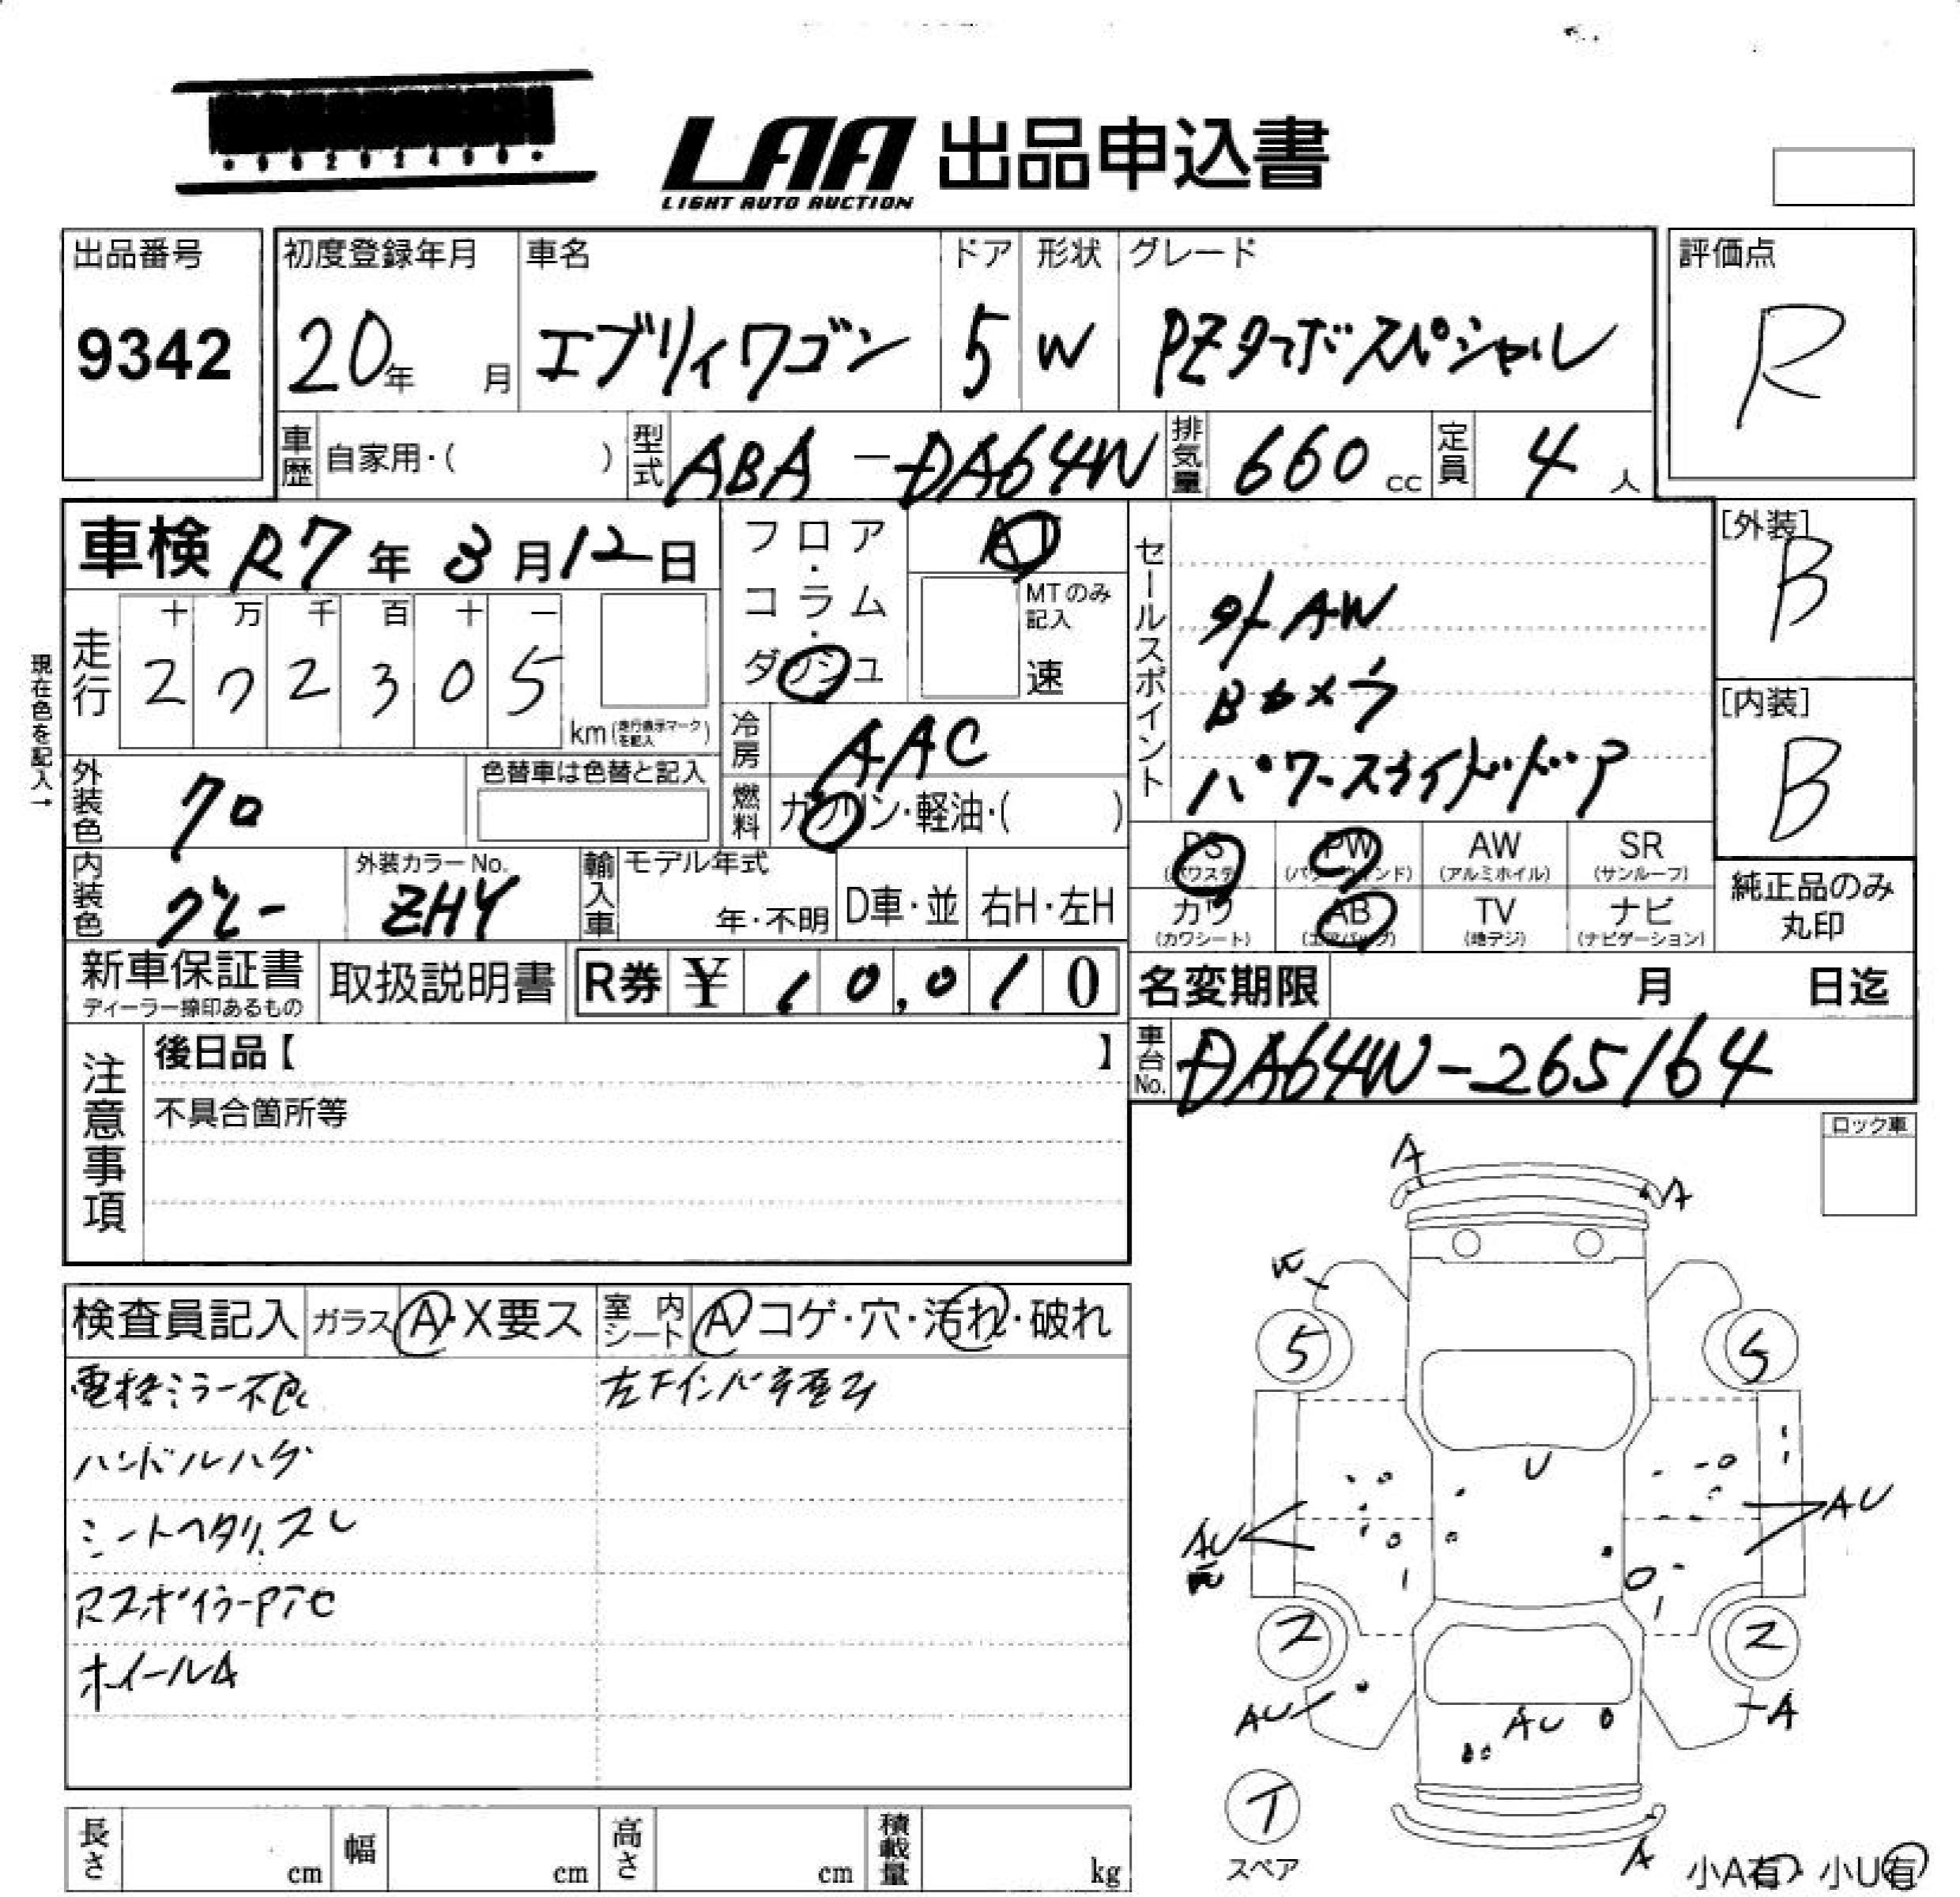 LAA 出品申込書
LIGHT AUTO AUCTION
出品番号
9342
初度登録年月
20年 月
車名
エブリィワゴン
ドア
5
形状
W
グレード
PZターボスペシャル
評価点
R
車歴 自家用・( )
型式 ABA-DA64W
排気量 660 cc
定員 4 人
車検 R7年 3月12日
フロア・コラム・ダッシュ
AT
MTのみ記入
速
現在色を記入→
走行
十 万 千 百 十 一
2 7 2 3 0 5
km(走行表示マークを記入)
冷房 AAC
燃料 ガソリン・軽油・( )
外装色 クロ
色替車は色替と記入
内装色 グレー
外装カラーNo.
ZHY
輸入車
モデル年式
年・不明
D車・並
右H・左H
セールスポイント
外AW
Bカメラ
パワースライドドア
[外装]
B
[内装]
B
PS (パワステ)
PW (パワーウインド)
AW (アルミホイル)
SR (サンルーフ)
カワ (カワシート)
AB (エアバッグ)
TV (地デジ)
ナビ (ナビゲーション)
純正品のみ
丸印
新車保証書
ディーラー捺印あるもの
取扱説明書
R券 ¥ 10,010
名変期限 月 日迄
車台No. DA64W-265164
注意事項
後日品【 】
不具合箇所等
ロック車
検査員記入
ガラス A・X要ス
室内シート A コゲ・穴・汚れ・破れ
電格ミラー不良
ハンドルハゲ
シートヘタリ、スレ
ホイールA
A
A
5
5
U
AU
AU
2
2
AU
AU
A
T
スペア
A
小A有・小U有
長さ cm
幅 cm
高さ cm
積載量 kg